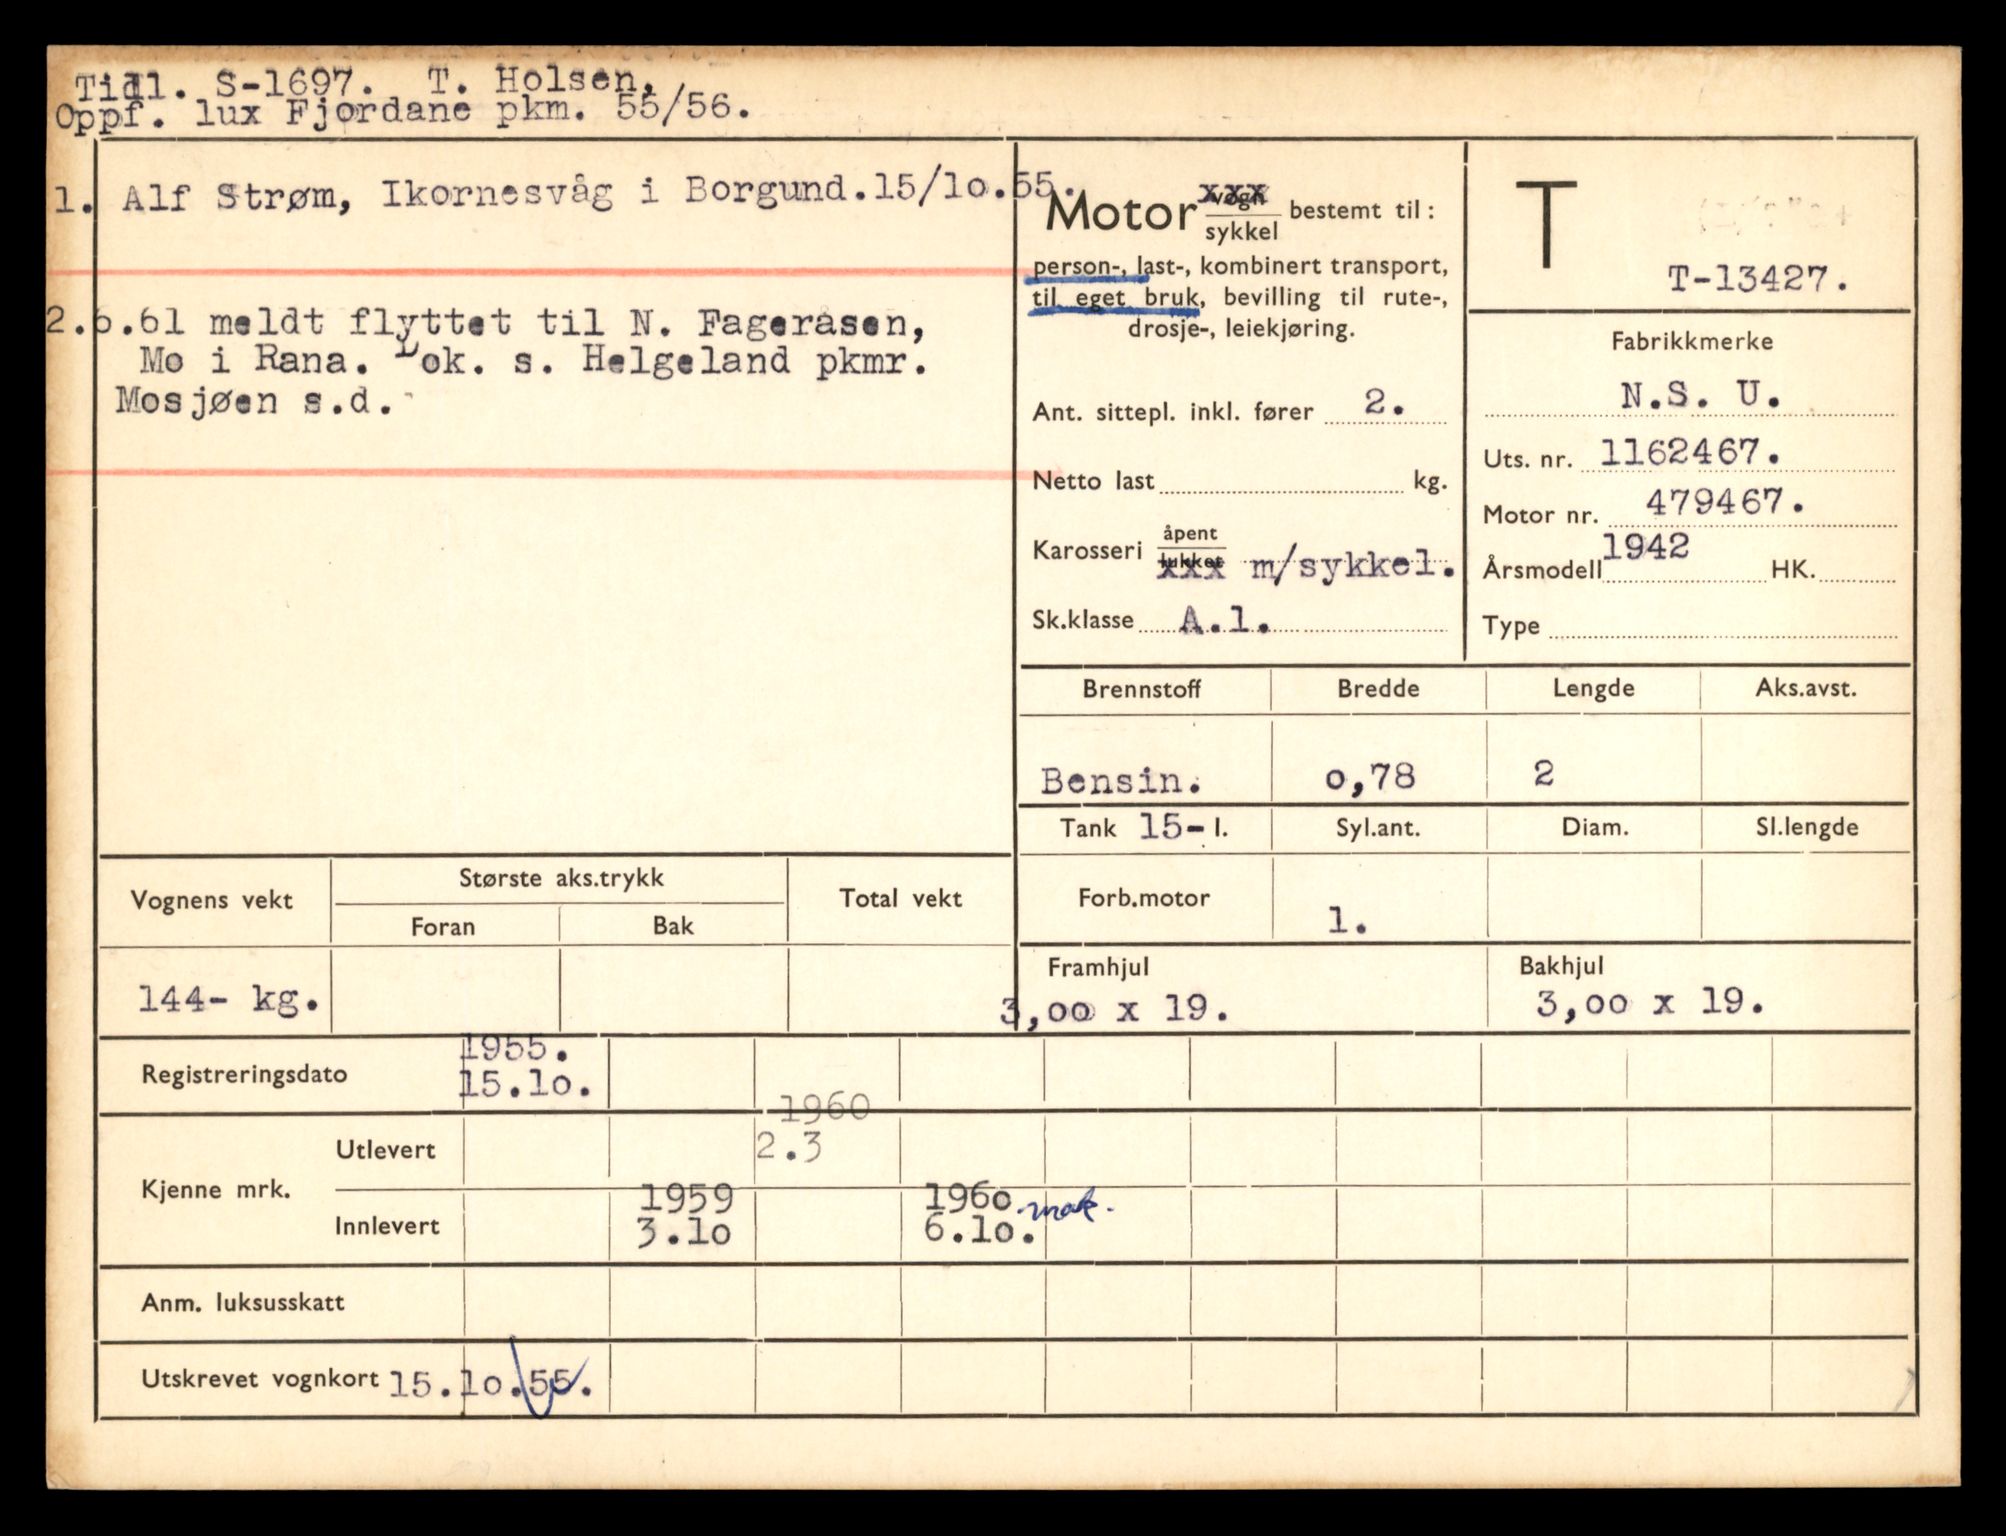 Tidl. S-1697. T. Holsen,
Oppf. lux Fjordane pkm. 55/56.
1. Alf Strøm, Ikornesvåg i Borgund.15/10.55.
2.6.61 meldt flyttet til N. Fageråsen,
Mo i Rana. Dok. s. Helgeland pkmr.
Mosjøen s.d.
Motor vogn xxx
sykkel bestemt til:
person-, last-, kombinert transport,
til eget bruk, bevilling til rute-,
drosje-, leiekjøring.
Ant. sittepl. inkl. fører 2.
Netto last kg.
Karosseri åpent
lukket xxx m/sykkel.
Sk.klasse A.1.
T
T-13427.
Fabrikkmerke
N.S. U.
Uts. nr. 1162467.
Motor nr. 479467.
Årsmodell 1942 HK.
Type
Brennstoff Bredde Lengde Aks.avst.
Bensin. 0,78 2
Tank 15- l. Syl.ant. Diam. Sl.lengde
Forb.motor 1.
Framhjul Bakhjul
3,00 x 19. 3,00 x 19.
Vognens vekt Største aks.trykk Total vekt
Foran Bak
144- kg.
Registreringsdato 1955.
15.10.
Kjenne mrk. Utlevert 1960
2.3
Innlevert 1959 1960
3.10 6.10.
Anm. luksusskatt
Utskrevet vognkort 15.10.55.